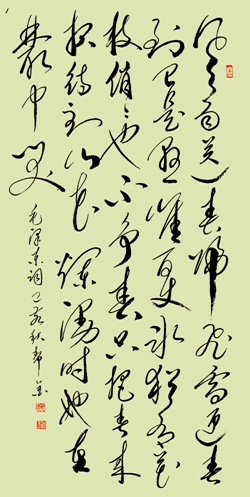 风雨送春归飞雪迎春
到已是悬崖百丈冰犹有花
枝俏俏也不争春只把春来
报待到山花烂漫时她在
丛中笑
毛泽东词己亥秋